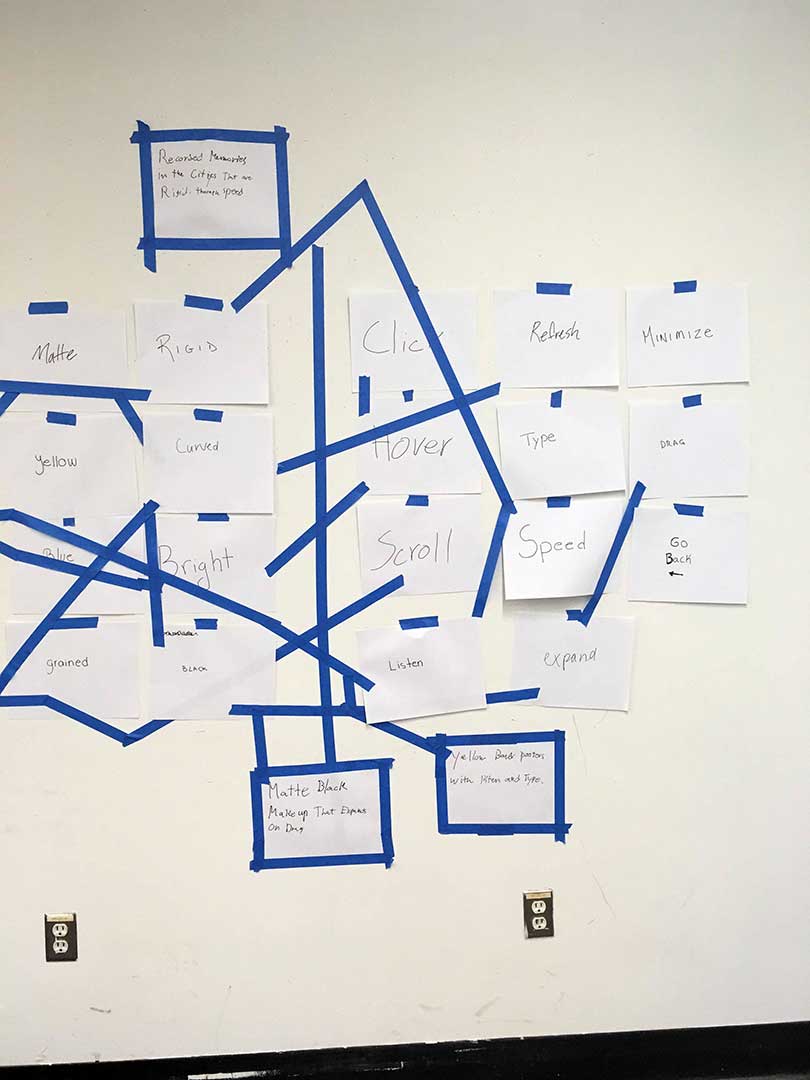 Recorded Memories
in the Cities That are
Rigid through Speed
Matte
RIGID
Click
Refresh
MINIMIZE
Yellow
Curved
Hover
Type
DRAG
Blue
Bright
Scroll
Speed
Go
Back
←
grained
BLACK
Listen
expand
Matte Black
Makeup That Expands
On Drag
Yellow posters
with listen and Type.